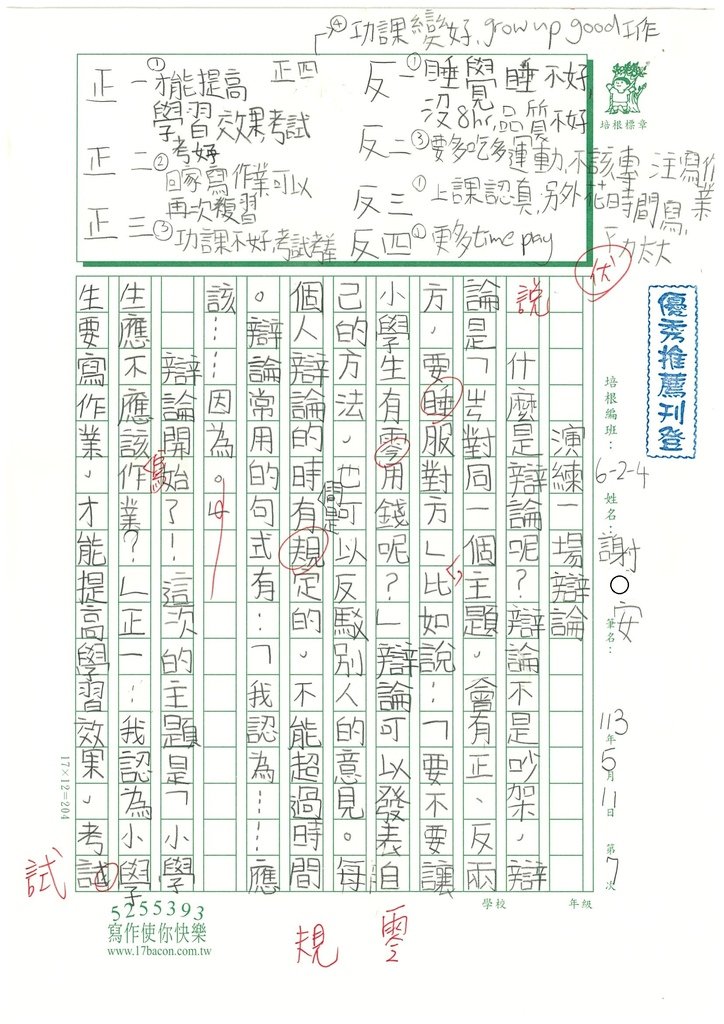 ④功課變好, grow up good工作
正一①才能提高
學習效果,考試
考好
正二②回家寫作業可以
再次複習
正三③功課不好,考試考差
正四
反一①睡覺睡不好,
沒8hr,品質不好
反二③要多吃多運動,不該專注寫作業
反三①上課認真,另外花時間寫,
功太大
反四①更多time pay
培根標章
伏
優秀推薦刊登
培根編班:6-2-4
姓名:謝○安
筆名:
113年5月11日 第7次
學校 年級
演練一場辯論
說 什麼是辯論呢?辯論不是吵架,辯
論是「出對同一個主題,會有正、反兩
方,要睡服對方」比如說:「要不要讓
小學生有零用錢呢?」辯論可以發表自
己的方法,也可以反駁別人的意見。每
個人辯論的時間是有規定的,不能超過時間
。辯論常用的句式有:「我認為……應
該……因為。
辯論開始了!這次的主題是「小學
生應不應該寫作業?」正一:我認為小學
生要寫作業,才能提高學習效果,考試
17×12=204
試
規
零
5255393
寫作使你快樂
www.17bacon.com.tw